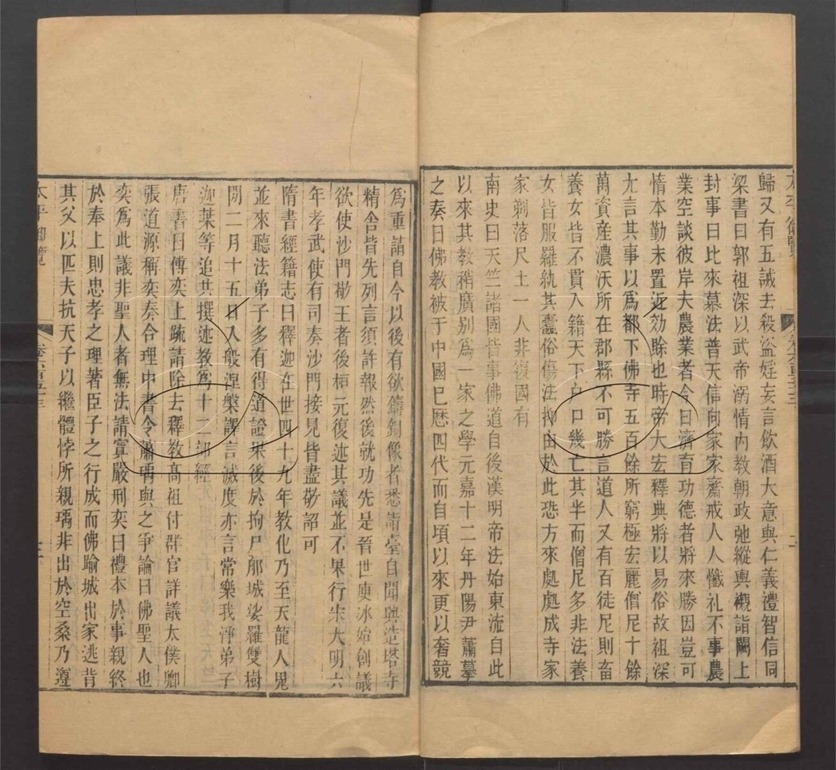 歸又有五誡去殺盜婬妄言飲酒大意與仁義禮智信同
梁書曰郭祖深以武帝溺情內教朝政弛縱輿櫬詣闕上
封事曰比來慕法普天信向家家齋戒人人懺礼不事農
業空談彼岸夫農業者今日濟育功德者將來勝因豈可
惰本勤末置近効賖也時帝大宏釋典將以易俗故祖深
尤言其事以爲都下佛寺五百餘所窮極宏麗僧尼十餘
萬資產濃沃所在郡縣不可勝言道人又有百徒尼則畜
養女皆不貫入籍天下户口幾亡其半而僧尼多非法養
女皆服羅紈其蠹俗傷法抑由於此恐方來處處成寺家
家剃落尺土一人非復國有
南史曰天竺諸國皆事佛道自後漢明帝法始東流自此
以來其教稍廣別爲一家之學元嘉十二年丹陽尹蕭摹
之奏曰佛教被于中國已歷四代而自頃以來更以奢競
爲重請自今以後有欲鑄銅像者悉詣臺自聞興造塔寺
精舍皆先列言須許報然後就功先是晉世庾冰始創議
欲使沙門敬王者後桓元復述其議並不果行宋大明六
年孝武使有司奏沙門接見皆盡敬詔可
隋書經籍志曰釋迦在世四十九年教化乃至天龍人鬼
並來聽法弟子多有得道證果後於拘尸那城娑羅雙樹
間二月十五日入般涅槃譯言滅度亦言常樂我淨弟子
迦葉等追共撰述教爲十二部經
唐書曰傅奕上疏請除去釋教高祖付群官詳議太僕卿
張道源稱奕奏合理中書令蕭瑀與之爭論曰佛聖人也
奕爲此議非聖人者無法請寘嚴刑奕曰禮本於事親終
於奉上則忠孝之理著臣子之行成而佛踰城出家逃背
其父以匹夫抗天子以繼體悖所親瑀非出於空桑乃遵